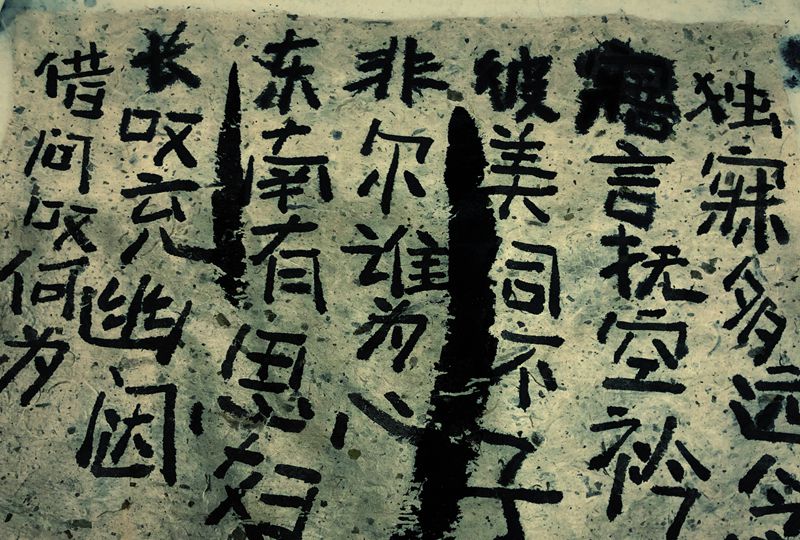 独寐多远念
寤言抚空衿
彼美同怀子
非尔谁为心
东南有思妇
长叹充幽闼
借问叹何为